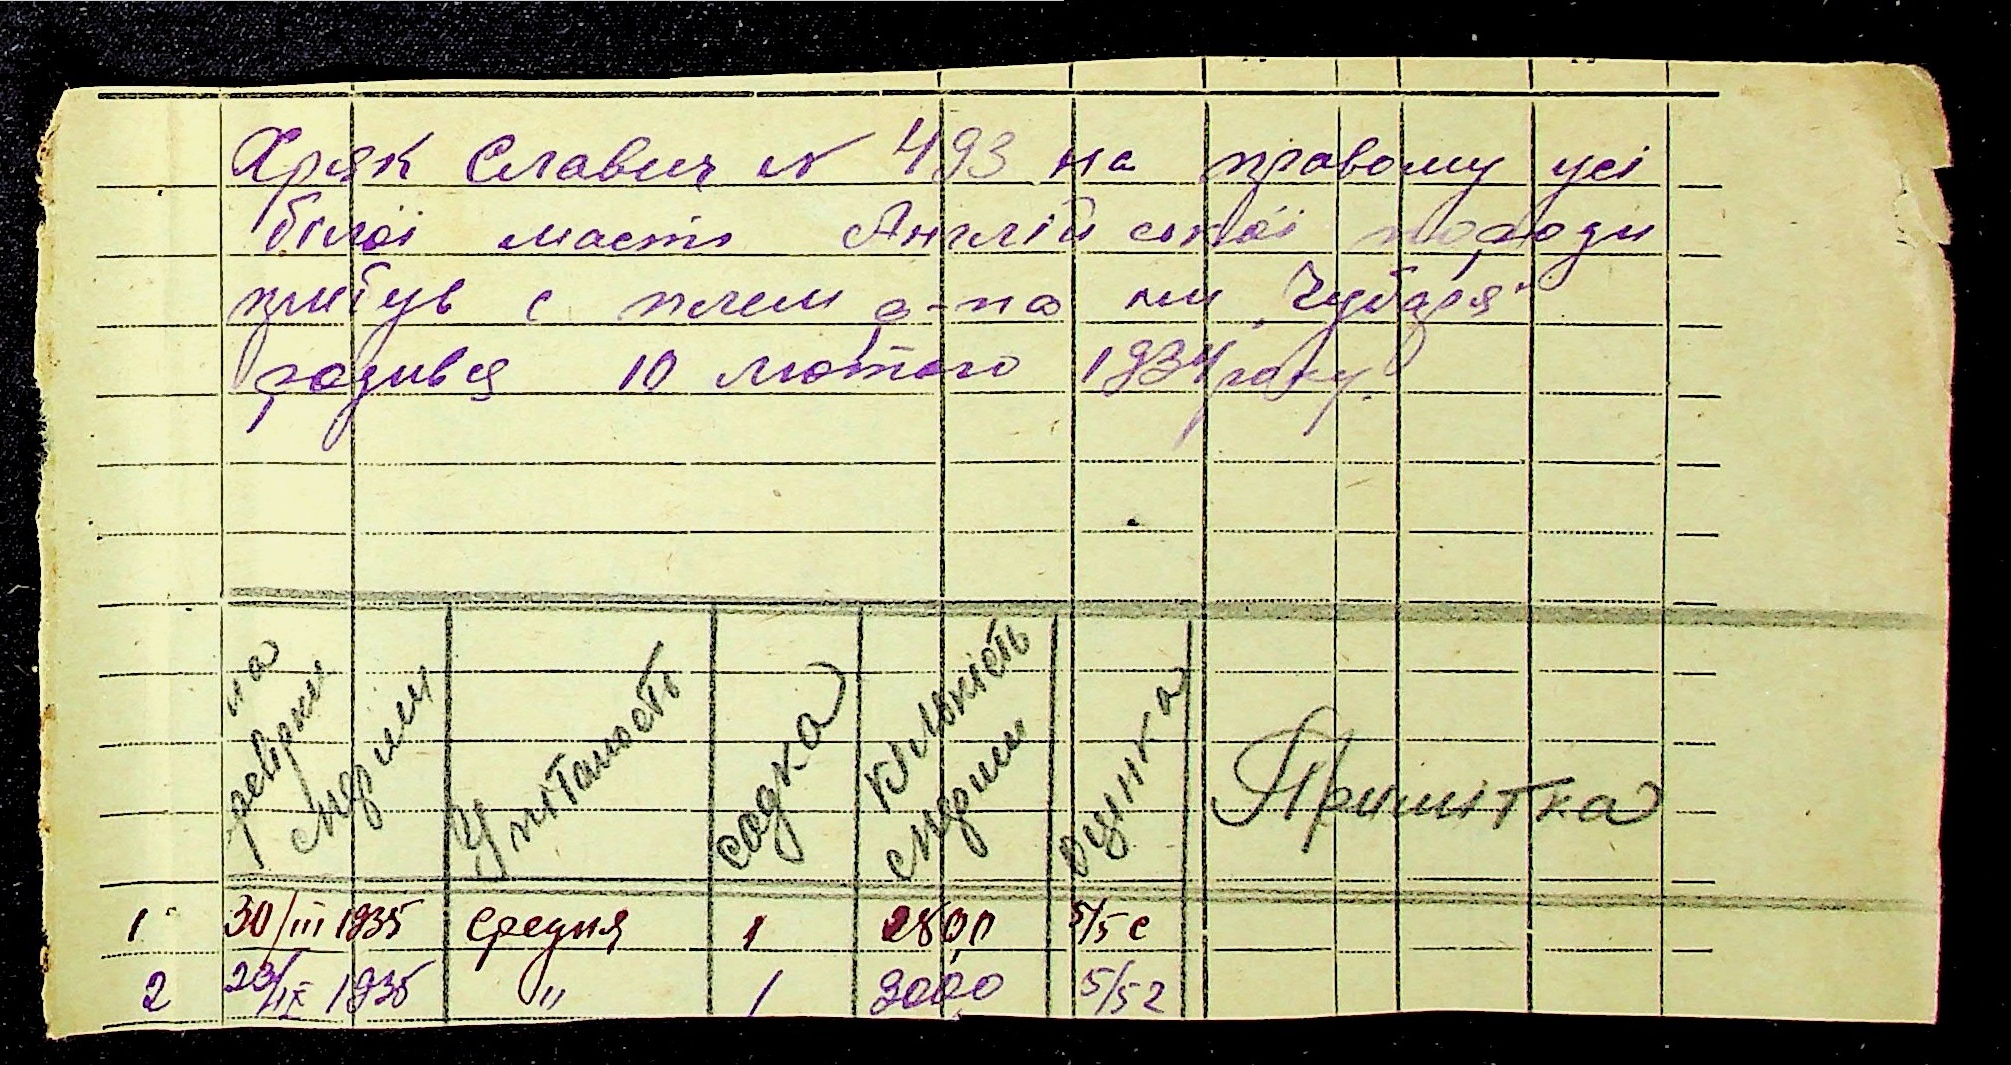 Хряк Славич № 493 на правому усі
білої масті Англійської породи
прибув с плем р-па им. "Чубаря"
родився 10 лютого 1934 року.
на
ревірки
спдрми
Упітаность
садка
Кількість
спдрми
оцінка
Примітка
1 30/III 1935 средня 1 2800 5/5 с
2 29/IX 1935 " 1 3000 5/5 2